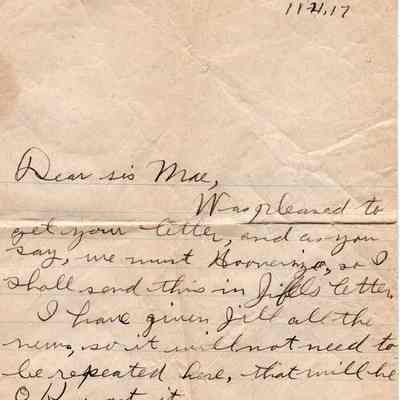 11 21, 17
Dear sis Mae,
Was pleased to
get your letter, and as you
say, we must Hooverize, so I
shall send this in Jill's letter.
I have given Jill all the
news, so it will not need to
be repeated here, that will be
O.K. it